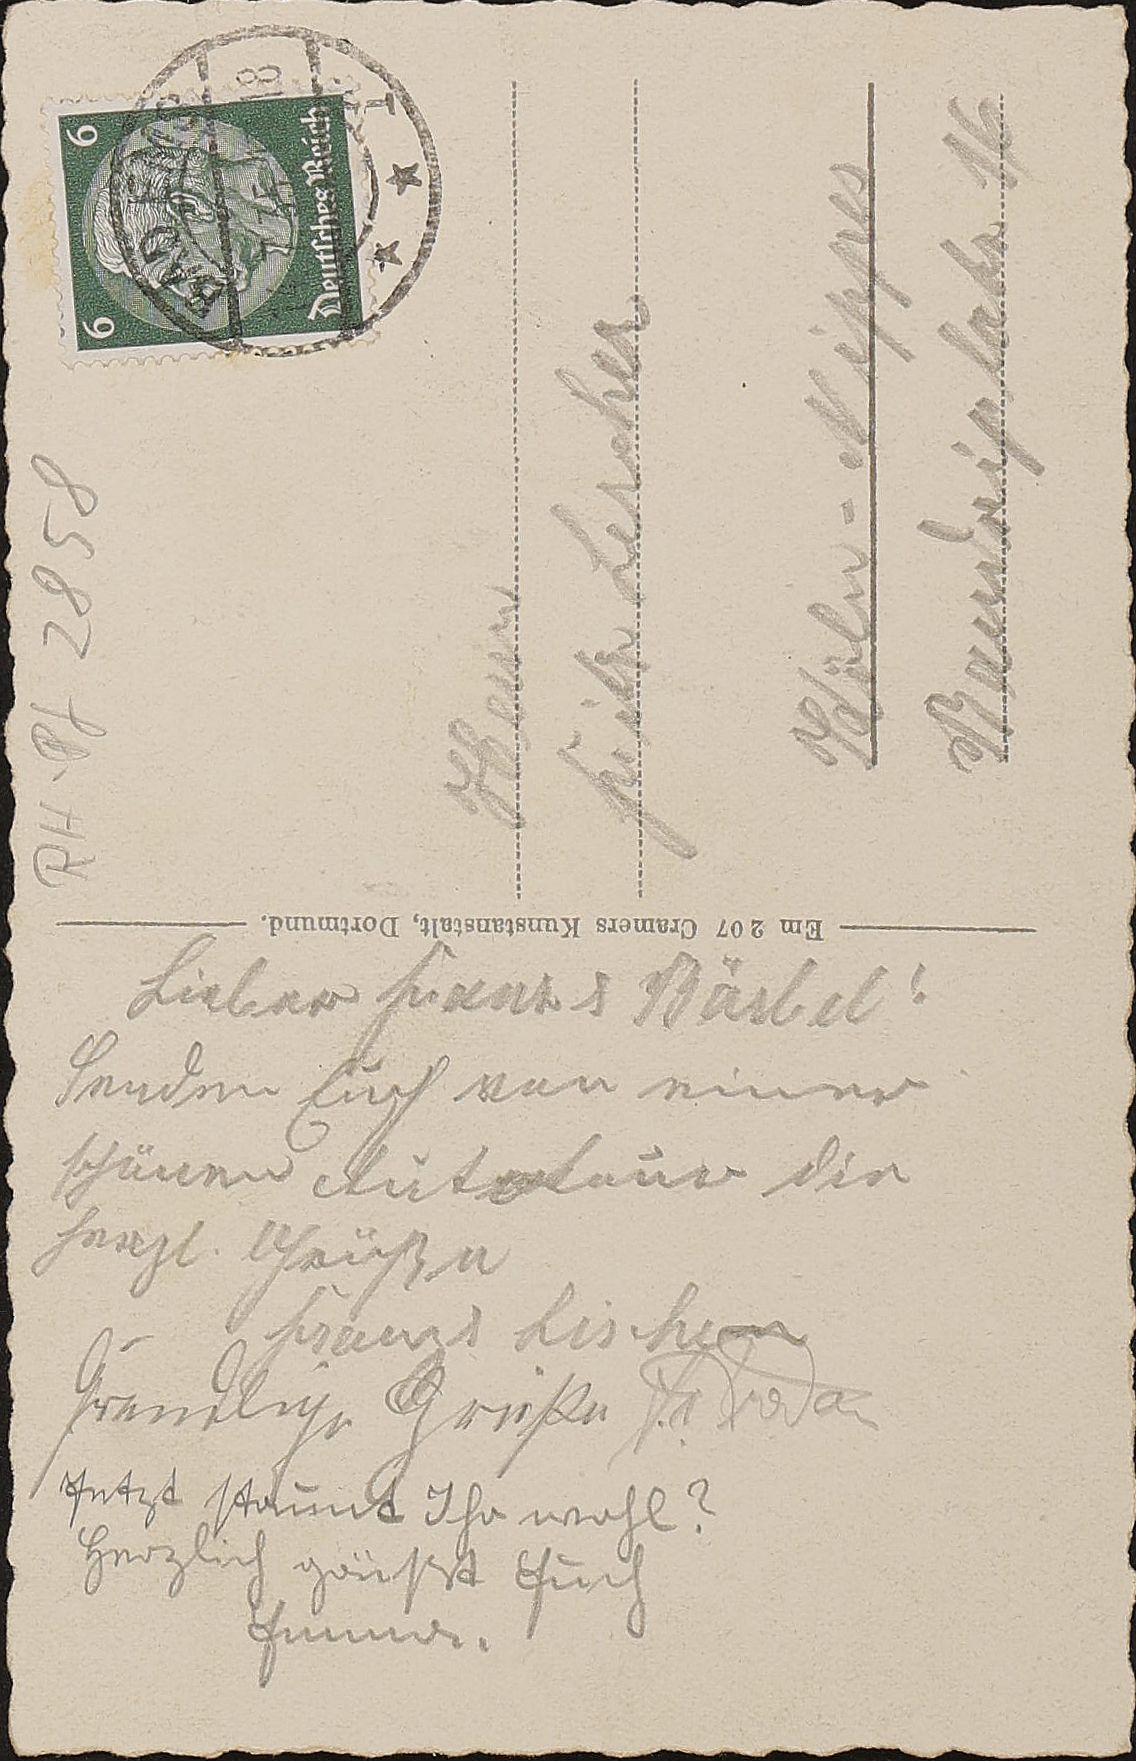 6
6
Deutsches Reich
BAD EMS
18
RH-Pf 2858
Herrn
Fritz Lescher
Köln-Nippes
16
Em 207 Cramers Kunstanstalt, Dortmund.
Lieber Franz & Bärbel!
Senden Euch von einer
schönen Autotour die
herzl. Grüße
Franz & Lischen
Freundliche Grüße
Jetzt staunt Ihr wohl?
Herzlich grüßt Euch